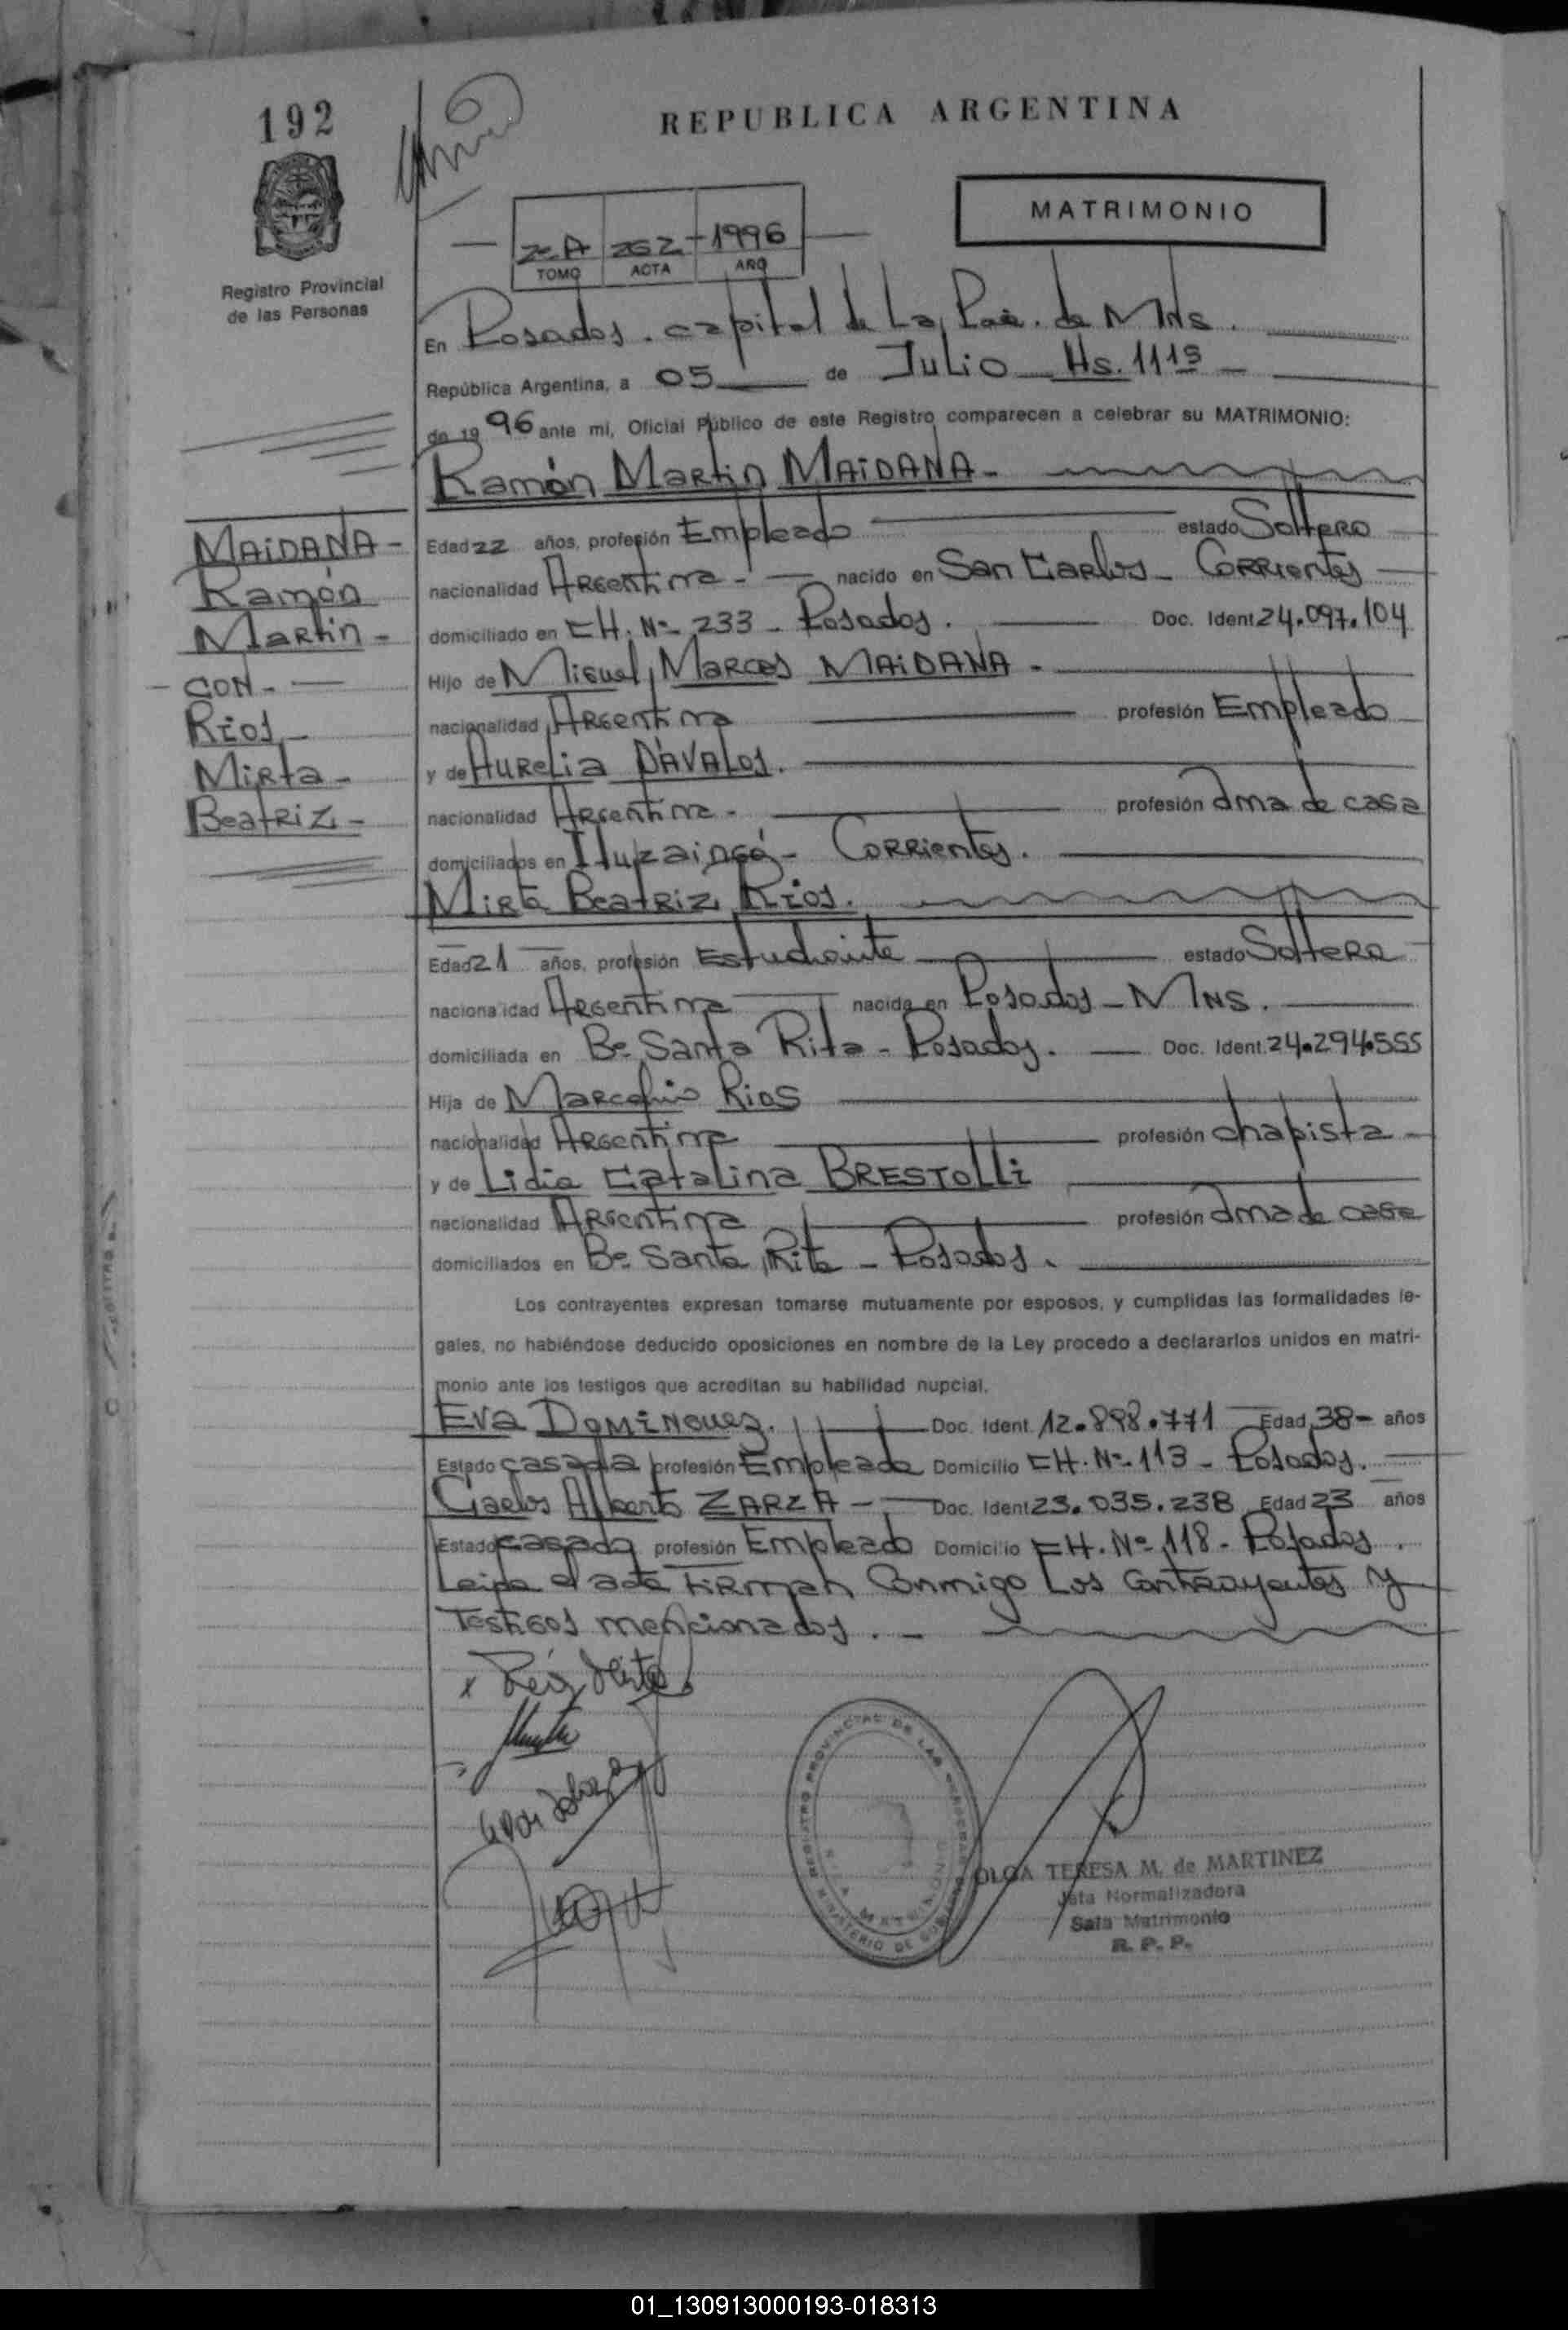 192
REPUBLICA ARGENTINA
MATRIMONIO
1996
TOMO ACTA AÑO
Registro Provincial
de las Personas
En Posadas. capital de La Pcia. de Mns.
República Argentina, a 05 de Julio Hs. 1115
de 1996 ante mi, Oficial Público de este Registro comparecen a celebrar su MATRIMONIO:
Ramón Martin MAIDANA-
MAIDANA-
Ramón
Martin-
- CON-
Rios-
Mirta-
Beatriz-
Edad 22 años, profesión Empleado estado Soltero
nacionalidad Argentina- nacido en San Carlos- Corrientes
domiciliado en CH. Nº 233 - Posadas. Doc. Ident 24.097.104
Hijo de Miguel Marcos MAIDANA-
nacionalidad Argentina profesión Empleado
y de Aurelia DAVALOS.
nacionalidad Argentina- profesión ama de casa
domiciliados en Ituzaingó- Corrientes.
Mirta Beatriz Rios.
Edad 21 años, profesión Estudiante estado Soltera
nacionalidad Argentina nacida en Posadas - Mns.
domiciliada en Bº Santa Rita - Posadas. Doc. Ident. 24.294.555
Hija de Marcelino Rios
nacionalidad Argentina profesión chapista-
y de Lidia Catalina BRESTOLLI
nacionalidad Argentina profesión ama de casa
domiciliados en Bº Santa Rita - Posadas.
Los contrayentes expresan tomarse mutuamente por esposos, y cumplidas las formalidades le-
gales, no habiéndose deducido oposiciones en nombre de la Ley procedo a declararlos unidos en matri-
monio ante los testigos que acreditan su habilidad nupcial.
Eva DOMINGUEZ. Doc. Ident. 12.898.771 Edad 38- años
Estado casada profesión Empleada Domicilio CH. Nº 113 - Posadas.
Carlos Alberto ZARZA- Doc. Ident 23.035.238 Edad 23 años
Estado casado profesión Empleado Domicilio CH. Nº 118 - Posadas.
Leida el acta Firman Conmigo Los Contrayentes y
Testigos mencionados.-
REGISTRO PROVINCIAL DE LAS PERSONAS
MINISTERIO DE GOBIERNO
OLGA TERESA M. de MARTINEZ
Jefa Normalizadora
Sala Matrimonio
R. P. P.
01_130913000193-018313